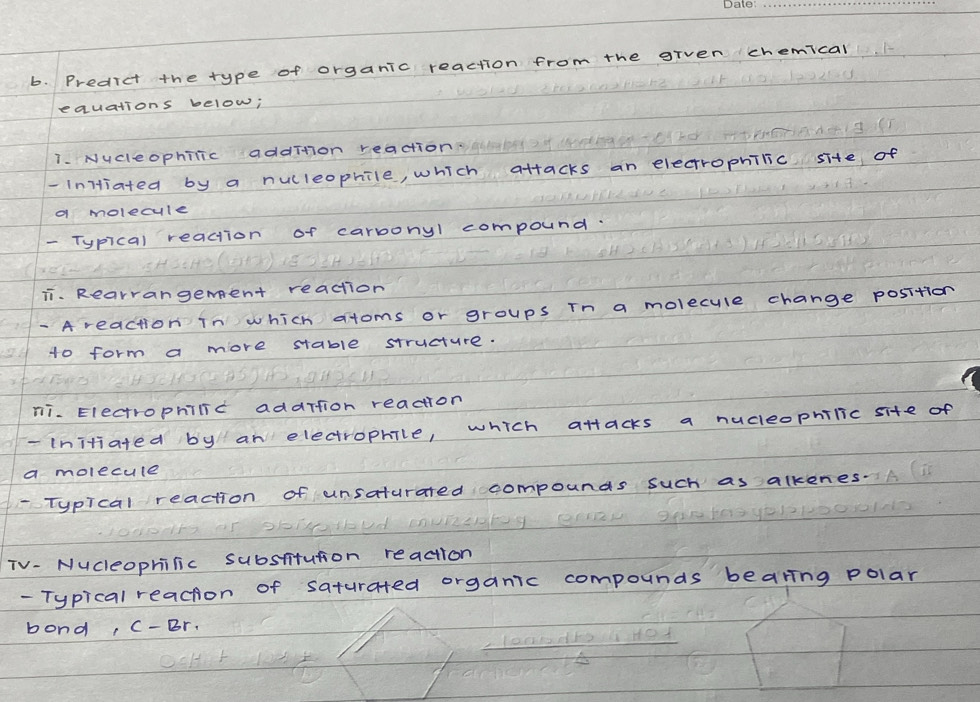 Date:
b. Predict the type of organic reaction from the given chemical
equations below;
i. Nucleophilic addition reaction.
- Initiated by a nucleophile, which attacks an electrophilic site of
a molecule
- Typical reaction of carbonyl compound.
ii. Rearrangement reaction
- A reaction in which atoms or groups in a molecule change position
to form a more stable structure.
iii. Electrophilic addition reaction
- Initiated by an electrophile, which attacks a nucleophilic site of
a molecule
- Typical reaction of unsaturated compounds such as alkenes.
iv. Nucleophilic substitution reaction
- Typical reaction of saturated organic compounds bearing polar
bond, C-Br.